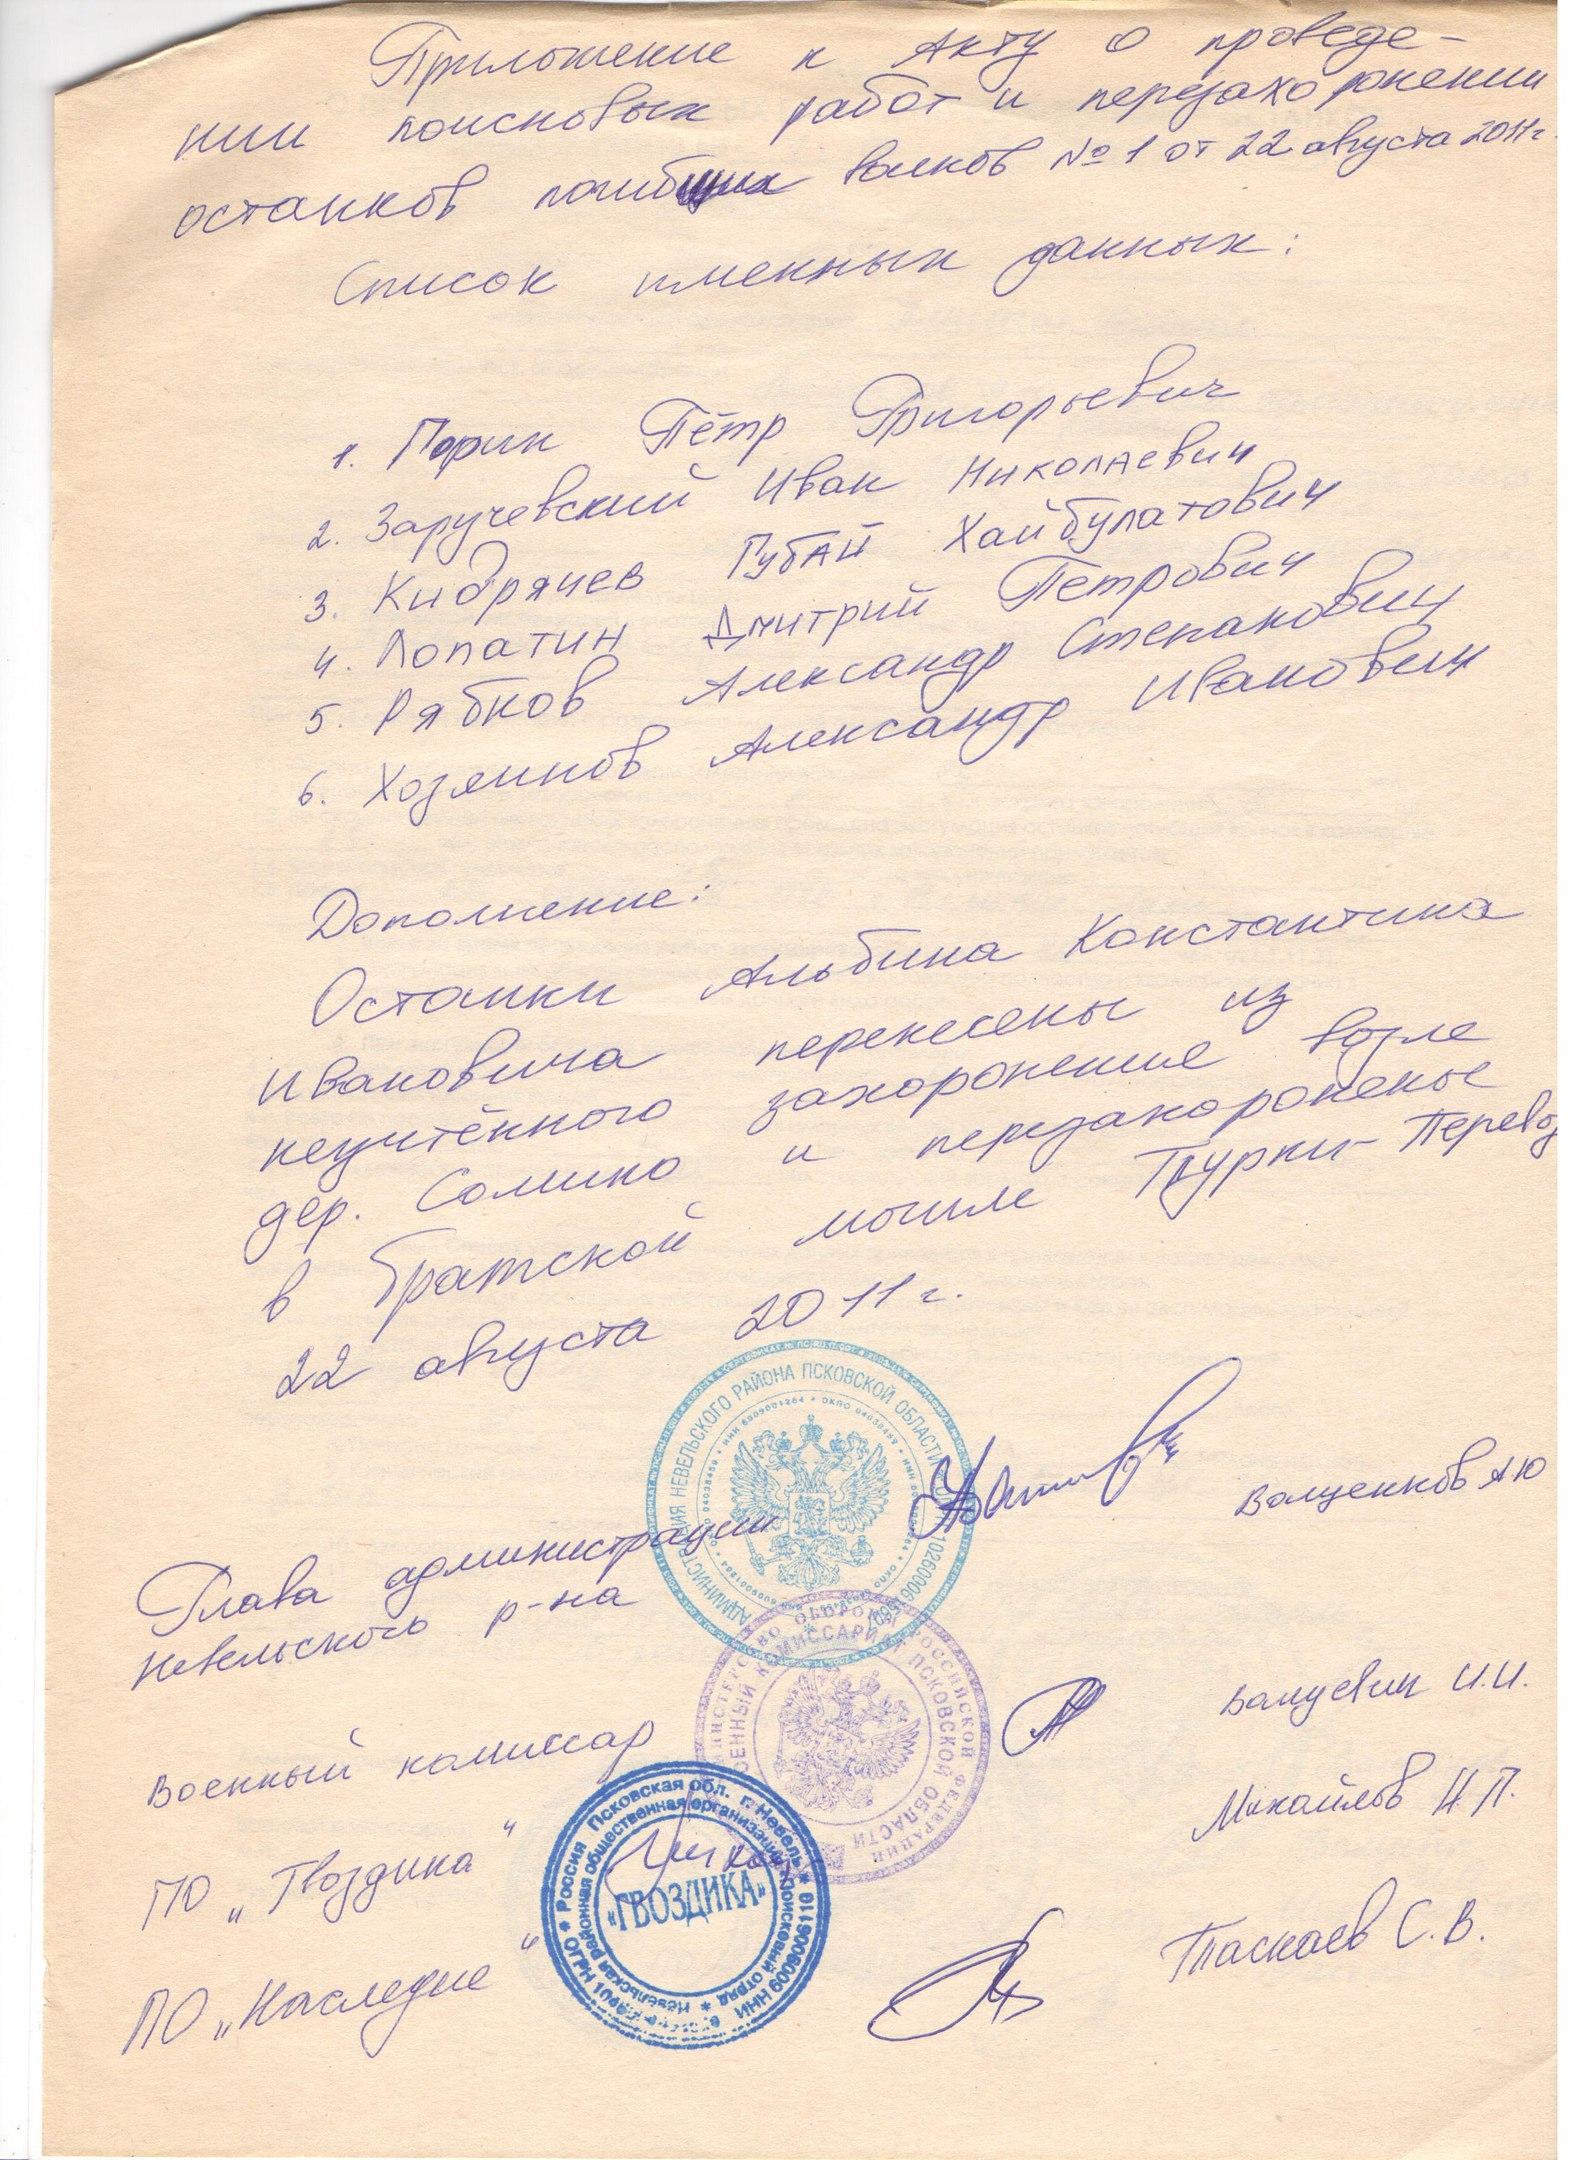 Приложение к Акту о проведе-
нии поисковых работ и перезахоронении
останков погибших воинов № 1 от 22 августа 2011г.
Список именных данных:
1. Порик Пётр Григорьевич
2. Заручевский Иван Николаевич
3. Кидрячев Губай Хайбулатович
4. Лопатин Дмитрий Петрович
5. Рябков Александр Степанович
6. Хозяинов Александр Иванович
Дополнение:
Останки Альбина Константина
Ивановича перенесены из
неучтённого захоронение возле
дер. Сомино и перезахоронены
в братской могиле Турки-Перевоз
22 августа 2011 г.
АДМИНИСТРАЦИЯ НЕВЕЛЬСКОГО РАЙОНА ПСКОВСКОЙ ОБЛАСТИ
ИНН 6009001264 * ОКПО 04038459
Глава администрации
Невельского р-на
Ващенков А Ю
МИНИСТЕРСТВО ОБОРОНЫ РОССИЙСКОЙ ФЕДЕРАЦИИ
ВОЕННЫЙ КОМИССАРИАТ ПСКОВСКОЙ ОБЛАСТИ
Военный комиссар
Валуевич И.И.
ПО "Гвоздика"
Михайлов Н.П.
Россия Псковская обл. г. Невель * ИНН 6009006110
Невельская районная общественная организация Поисковый отряд
«ГВОЗДИКА»
ПО "Наследие"
Таскаев С.В.